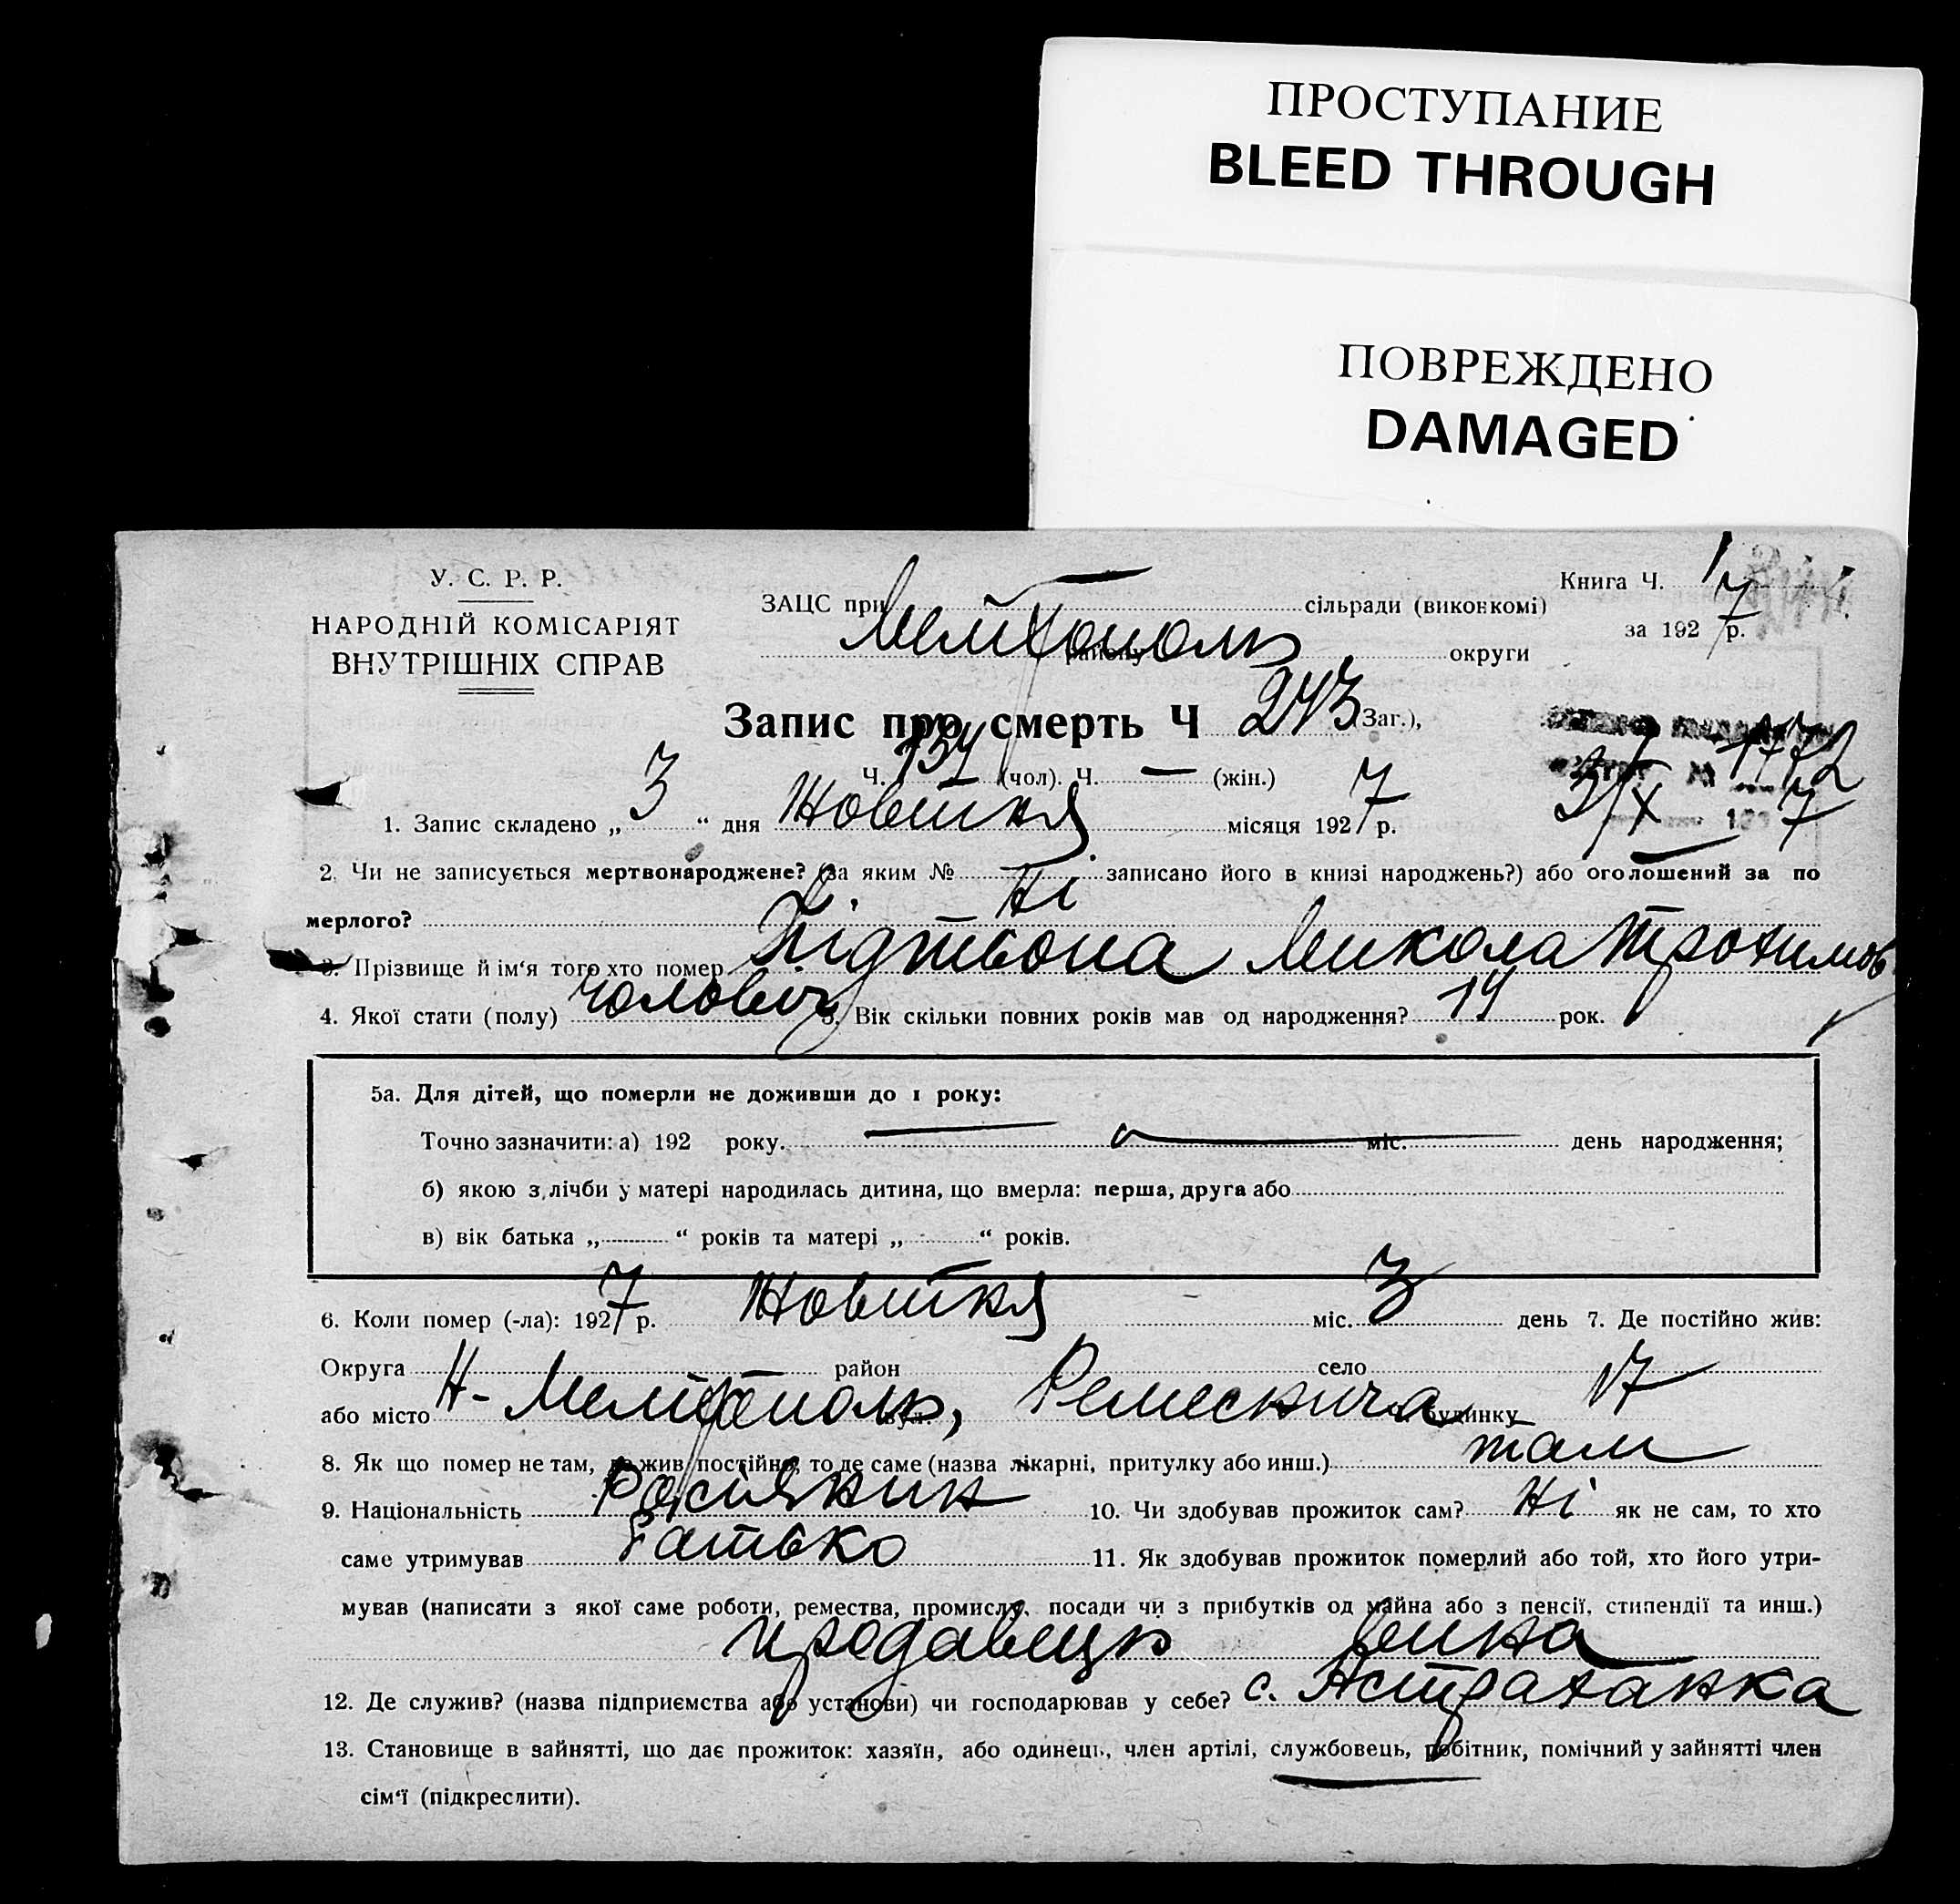 ПРОСТУПАНИЕ
BLEED THROUGH
ПОВРЕЖДЕНО
DAMAGED
У. С. Р. Р.
НАРОДНІЙ КОМІСАРІЯТ
ВНУТРІШНІХ СПРАВ
Книга Ч. 1
за 1927 р.
ЗАЦС при сільради (виконкомі)
Мелітополь
району округи
Запис про смерть Ч 243 (Заг.),
Ч. 134 (чол). Ч. — (жін.)
1772
3/X 1927
1. Запис складено „ 3 “ дня Жовтня місяця 1927 р.
2. Чи не записується мертвонароджене? (За яким № записано його в книзі народжень?) або оголошений за по
мерлого? Ні
3. Прізвище й ім‘я того хто помер Микола Трохимов
4. Якої стати (полу) чоловіч 5. Вік скільки повних років мав од народження? 14 рок.
5а. Для дітей, що померли не доживши до 1 року:
Точно зазначити: а) 192 року. — міс. — день народження;
б) якою з лічби у матері народилась дитина, що вмерла: перша, друга або
в) вік батька „ “ років та матері „ “ років.
6. Коли помер (-ла): 1927 р. Жовтня міс. 3 день 7. Де постійно жив:
Округа район село
або місто Н-Мелітополь, вул. будинку 17
8. Як що помер не там, де жив постійно, то де саме (назва лікарні, притулку або инш.) там
9. Національність Росіянин 10. Чи здобував прожиток сам? Ні як не сам, то хто
саме утримував батько 11. Як здобував прожиток померлий або той, хто його утри-
мував (написати з якої саме роботи, ремества, промислу, посади чи з прибутків од майна або з пенсії, стипендії та инш.)
продавець вина
12. Де служив? (назва підприємства або установи) чи господарював у себе? с. Астраханка
13. Становище в зайнятті, що дає прожиток: хазяїн, або одинець, член артілі, службовець, робітник, помічний у зайнятті член
сім‘ї (підкреслити).